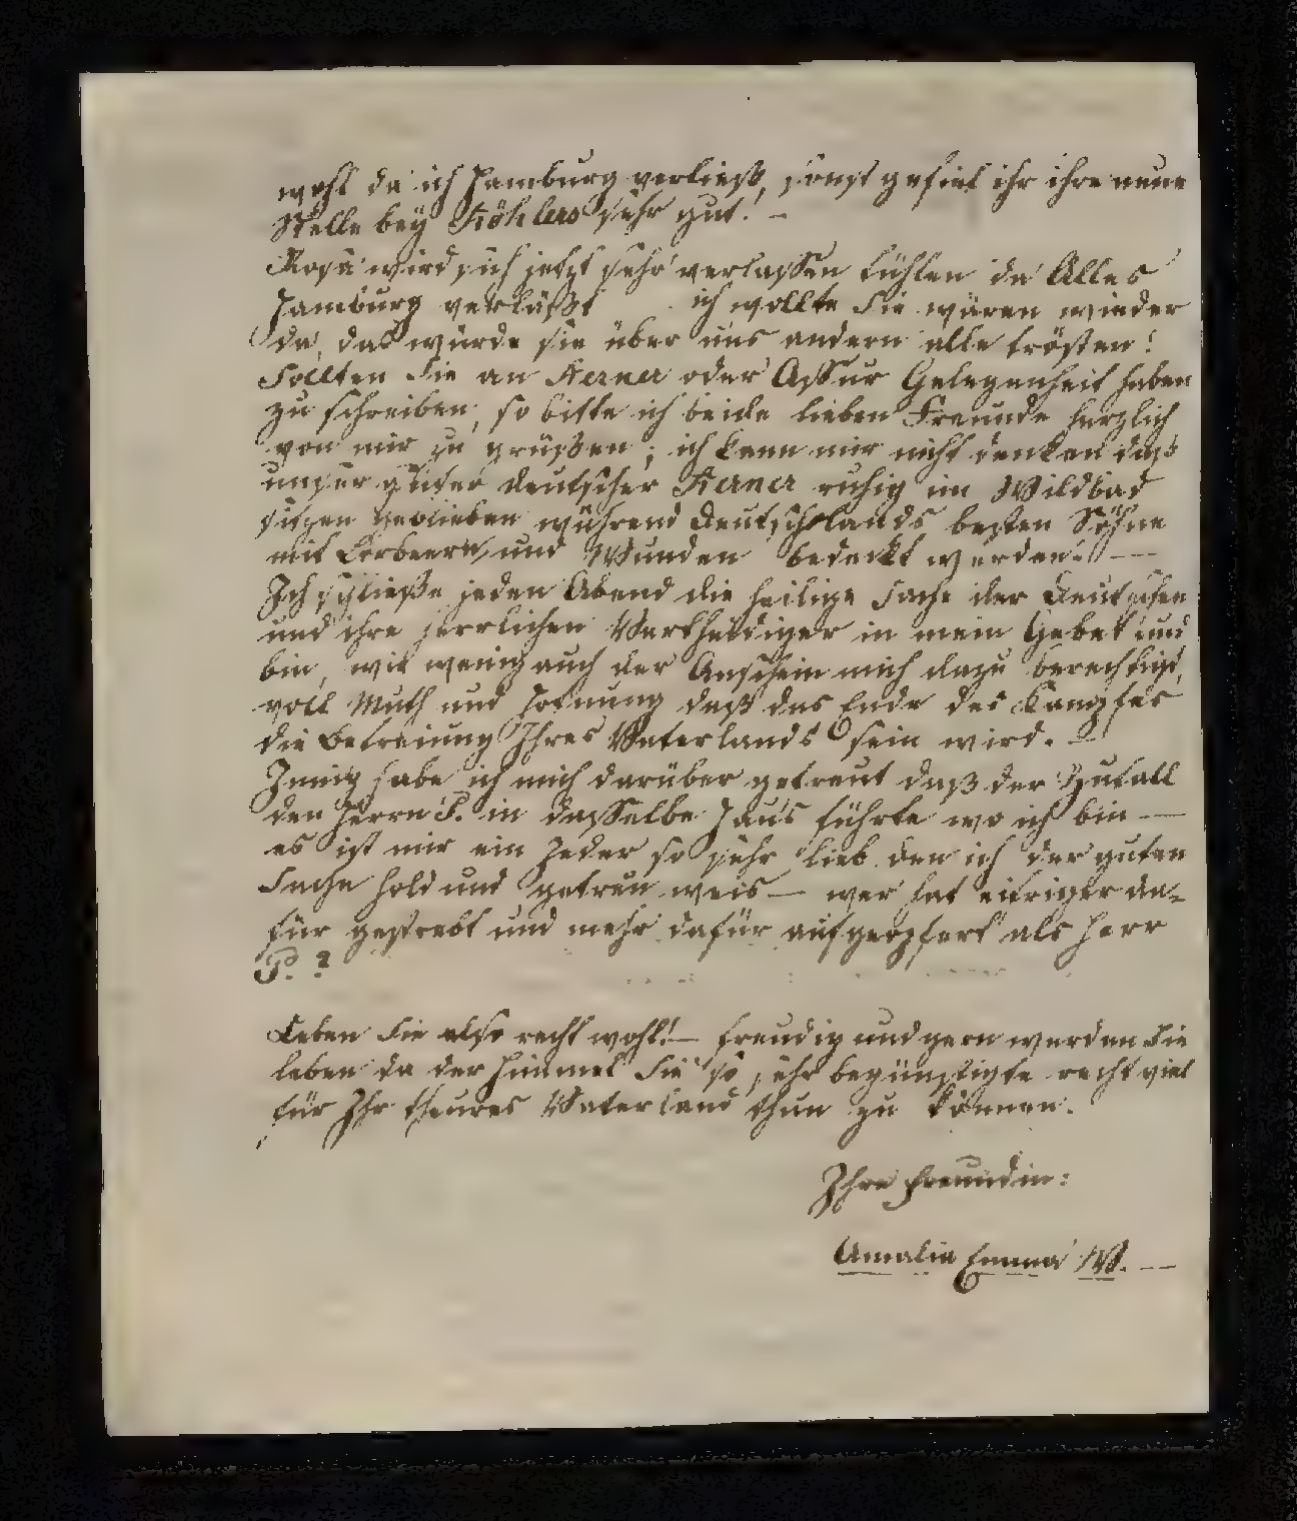 wohl da ich Hamburg verließ, sonst gefiel ihr ihre neue
Stelle bey Köhlers sehr gut! –
Rosa wird sich jetzt sehr verlassen fühlen da Alles
Hamburg verläßt ich wollte Sie wären wieder
da, das würde sie über uns andern alle trösten!
Sollten Sie an Kerner oder Assur Gelegenheit haben
zu schreiben, so bitte ich beide lieben Freunde herzlich
von mir zu grüßen; ich kann mir nicht denken daß
unser guter deutscher Kerner ruhig im Wildbad
sitzen geblieben während Deutschlands besten Söhne
mit Lorbeern und Wunden bedeckt werden! ––
Ich schließe jeden Abend die heilige Sache der Deutschen
und ihre herrlichen Vertheidiger in mein Gebet und
bin, wie wenig auch der Anschein mich dazu berechtigt,
voll Muth und Hofnung daß das Ende des Kampfes
die Befreiung Ihres Vaterlands sein wird. –
Innig habe ich mich darüber gefreut daß der Zufall
den Herrn P. in dasselbe Haus führte wo ich bin –
es ist mir ein Jeder so sehr lieb den ich der guten
Sache hold und getreu weis – wer hat eifriger da=
für gestrebt und mehr dafür aufgeopfert als Herr
P. ?
Leben Sie also recht wohl! – freudig und gern werden Sie
leben da der Himmel Sie so sehr begünstigte recht viel
für Ihr theures Vaterland thun zu können.
Ihre Freundin:
Amalia Emma W. –